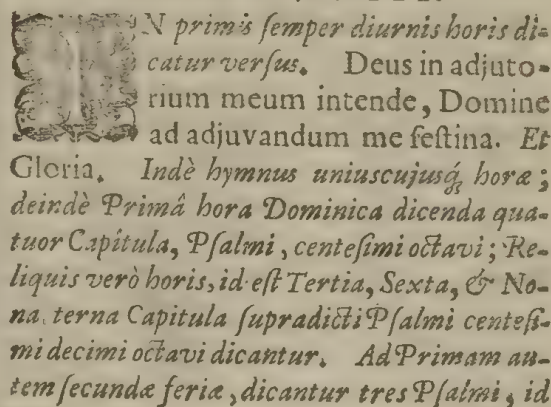 IN primis semper diurnis horis di-
catur versus. Deus in adjuto-
rium meum intende, Domine
ad adjuvandum me festina. Et
Gloria. Indè hymnus uniuscujusq́; horæ;
deindè Primâ hora Dominica dicenda qua-
tuor Capitula, Psalmi, centesimi octavi; Re-
liquis verò horis, id est Tertia, Sexta, & No-
na, terna Capitula supradicti Psalmi centesi-
mi decimi octavi dicantur. Ad Primam au-
tem secundæ feriæ, dicantur tres Psalmi, id